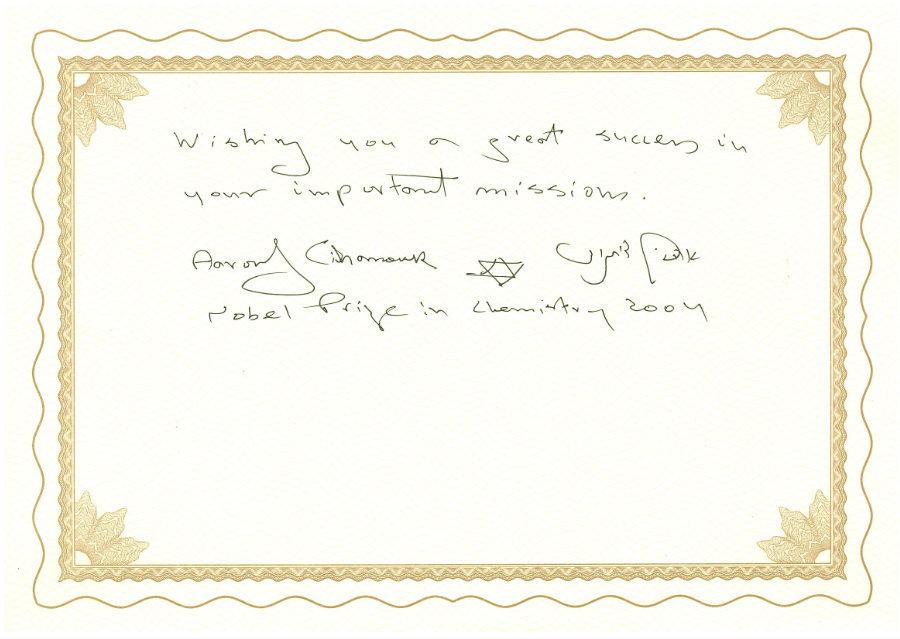 Wishing you a great success in
your important missions.
Aaron Ciechanover אהרן צ'חנובר
Nobel Prize in Chemistry 2004